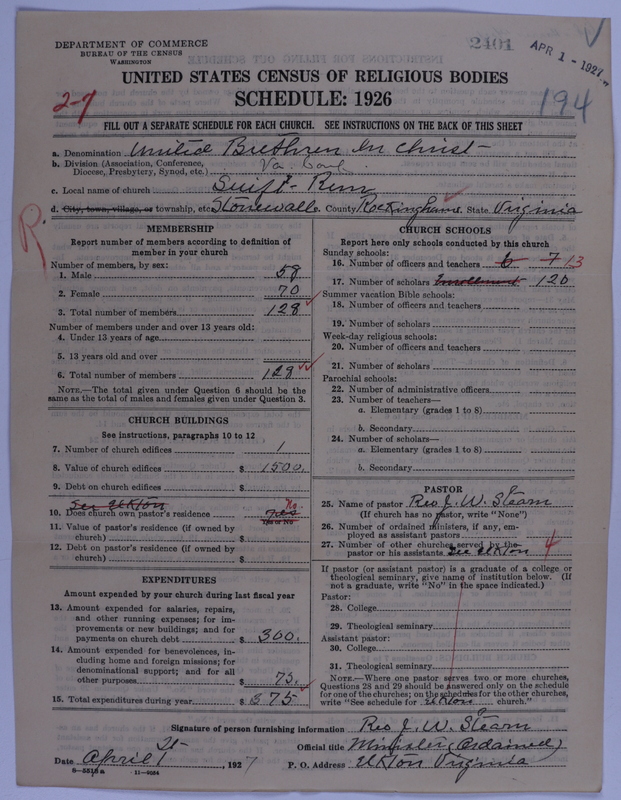 DEPARTMENT OF COMMERCE
BUREAU OF THE CENSUS
WASHINGTON
2401
APR 1 - 1927
UNITED STATES CENSUS OF RELIGIOUS BODIES
SCHEDULE: 1926
2-7
194
FILL OUT A SEPARATE SCHEDULE FOR EACH CHURCH. SEE INSTRUCTIONS ON THE BACK OF THIS SHEET
a. Denomination United Brethren In Christ
b. Division (Association, Conference, Diocese, Presbytery, Synod, etc.) Va. Conf.
c. Local name of church Swift-Run
d. City, town, village, or township, etc. Stonewall e. County Rockingham State Virginia
R
MEMBERSHIP
Report number of members according to definition of
member in your church
Number of members, by sex:
1. Male 58
2. Female 70
3. Total number of members 128
Number of members under and over 13 years old:
4. Under 13 years of age
5. 13 years old and over
6. Total number of members 128
NOTE.—The total given under Question 6 should be the
same as the total of males and females given under Question 3.
CHURCH BUILDINGS
See instructions, paragraphs 10 to 12
7. Number of church edifices 1
8. Value of church edifices $ 1500.
9. Debt on church edifices $
See Elkton
10. Does church own pastor's residence Yes No
Yes or No
11. Value of pastor's residence (if owned by
church) $
12. Debt on pastor's residence (if owned by
church) $
EXPENDITURES
Amount expended by your church during last fiscal year
13. Amount expended for salaries, repairs,
and other running expenses; for im-
provements or new buildings; and for
payments on church debt $ 300.
14. Amount expended for benevolences, in-
cluding home and foreign missions; for
denominational support; and for all
other purposes $ 75.
15. Total expenditures during year $ 375
CHURCH SCHOOLS
Report here only schools conducted by this church
Sunday schools:
16. Number of officers and teachers 6 7 13
17. Number of scholars Enrollment 120
Summer vacation Bible schools:
18. Number of officers and teachers
19. Number of scholars
Week-day religious schools:
20. Number of officers and teachers
21. Number of scholars
Parochial schools:
22. Number of administrative officers
23. Number of teachers—
a. Elementary (grades 1 to 8)
b. Secondary
24. Number of scholars—
a. Elementary (grades 1 to 8)
b. Secondary
PASTOR
25. Name of pastor Rev J. W. Stearn
(If church has no pastor, write "None")
26. Number of ordained ministers, if any, em-
ployed as assistant pastors
27. Number of other churches served by the
pastor or his assistants See Elkton 4
If pastor (or assistant pastor) is a graduate of a college or
theological seminary, give name of institution below. (If
not a graduate, write "No" in the space indicated.)
Pastor:
28. College
29. Theological seminary
Assistant pastor:
30. College
31. Theological seminary
NOTE.—Where one pastor serves two or more churches,
Questions 28 and 29 should be answered only on the schedule
for one of the churches; on the schedules for the other churches,
write "See schedule for Elkton church."
Signature of person furnishing information Rev J. W. Stearn
Official title Minister (Ordained)
Date April 1, 1927 P. O. Address Elkton Virginia
8-5518 a 11-9084